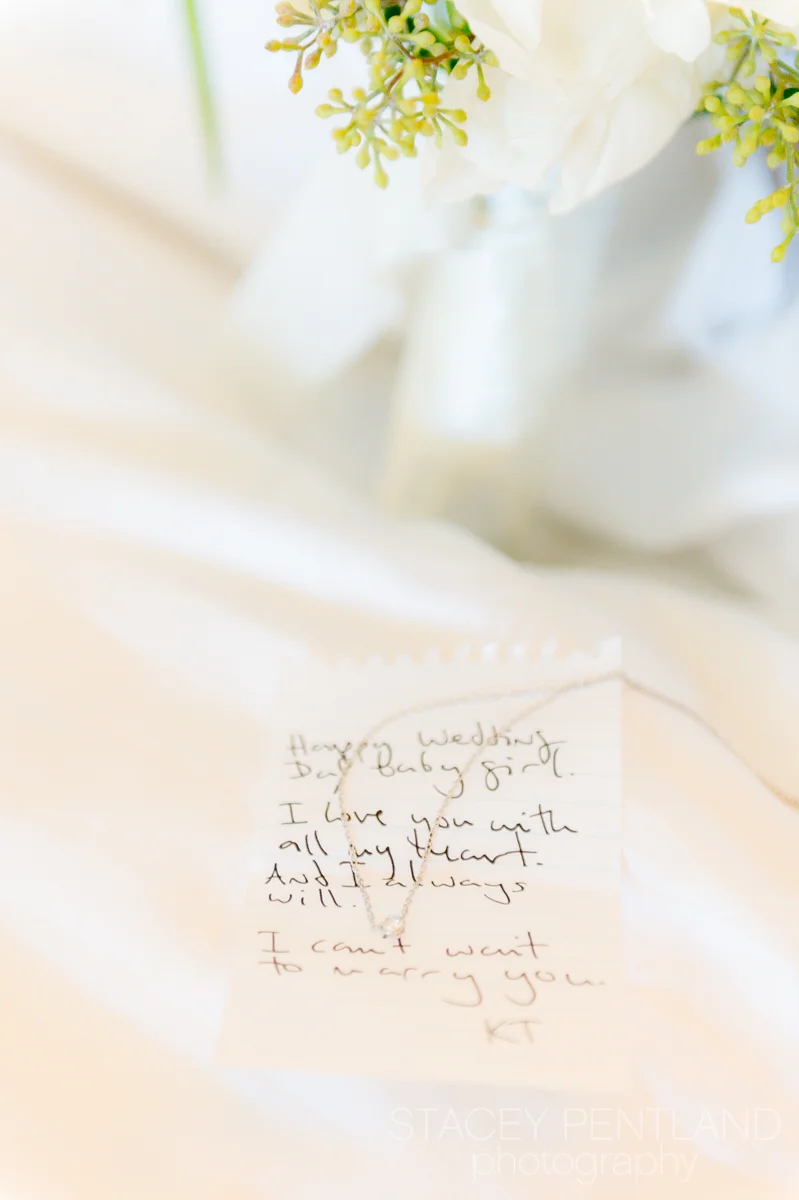 Happy Wedding
Day Baby girl.
I love you with
all my heart.
And I always
will.
I can't want
to marry you.
KT
STACEY PENTLAND
photography